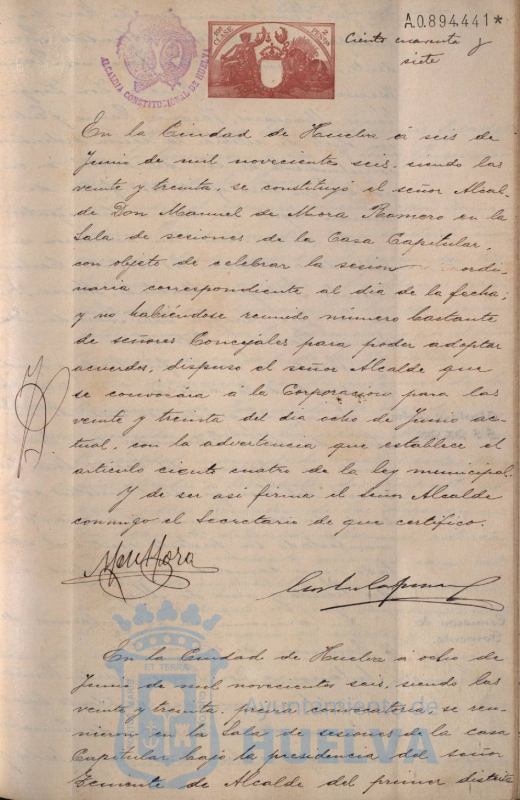 A.0.894.441*
Ciento cuarenta y
siete
ALCALDIA CONSTITUCIONAL DE HUELVA
CLASE
PESETAS
En la Ciudad de Huelva á seis de
Junio de mil novecientos seis, siendo las
veinte y treinta, se constituyó el señor Alcal-
de Don Manuel de Mora Romero en la
Sala de sesiones de la Casa Capitular,
con objeto de celebrar la sesion ordi-
naria correspondiente al dia de la fecha;
y no habiéndose reunido número bastante
de señores Concejales para poder adoptar
acuerdos, dispuso el señor Alcalde que
se convocára á la Corporacion para las
veinte y treinta del dia ocho de Junio ac-
tual, con la advertencia que establece el
artículo ciento cuatro de la ley municipal.
Y de ser asi firma el Señor Alcalde
conmigo el Secretario de que certifico.
M de Mora
En la Ciudad de Huelva á ocho de
Junio de mil novecientos seis, siendo las
veinte y treinta, previa convocatoria, se reu-
nieron en la Sala de sesiones de la casa
Capitular bajo la presidencia del señor
Teniente de Alcalde del primer distrito
ET TERRÆ
Ayuntamiento de
HUELVA